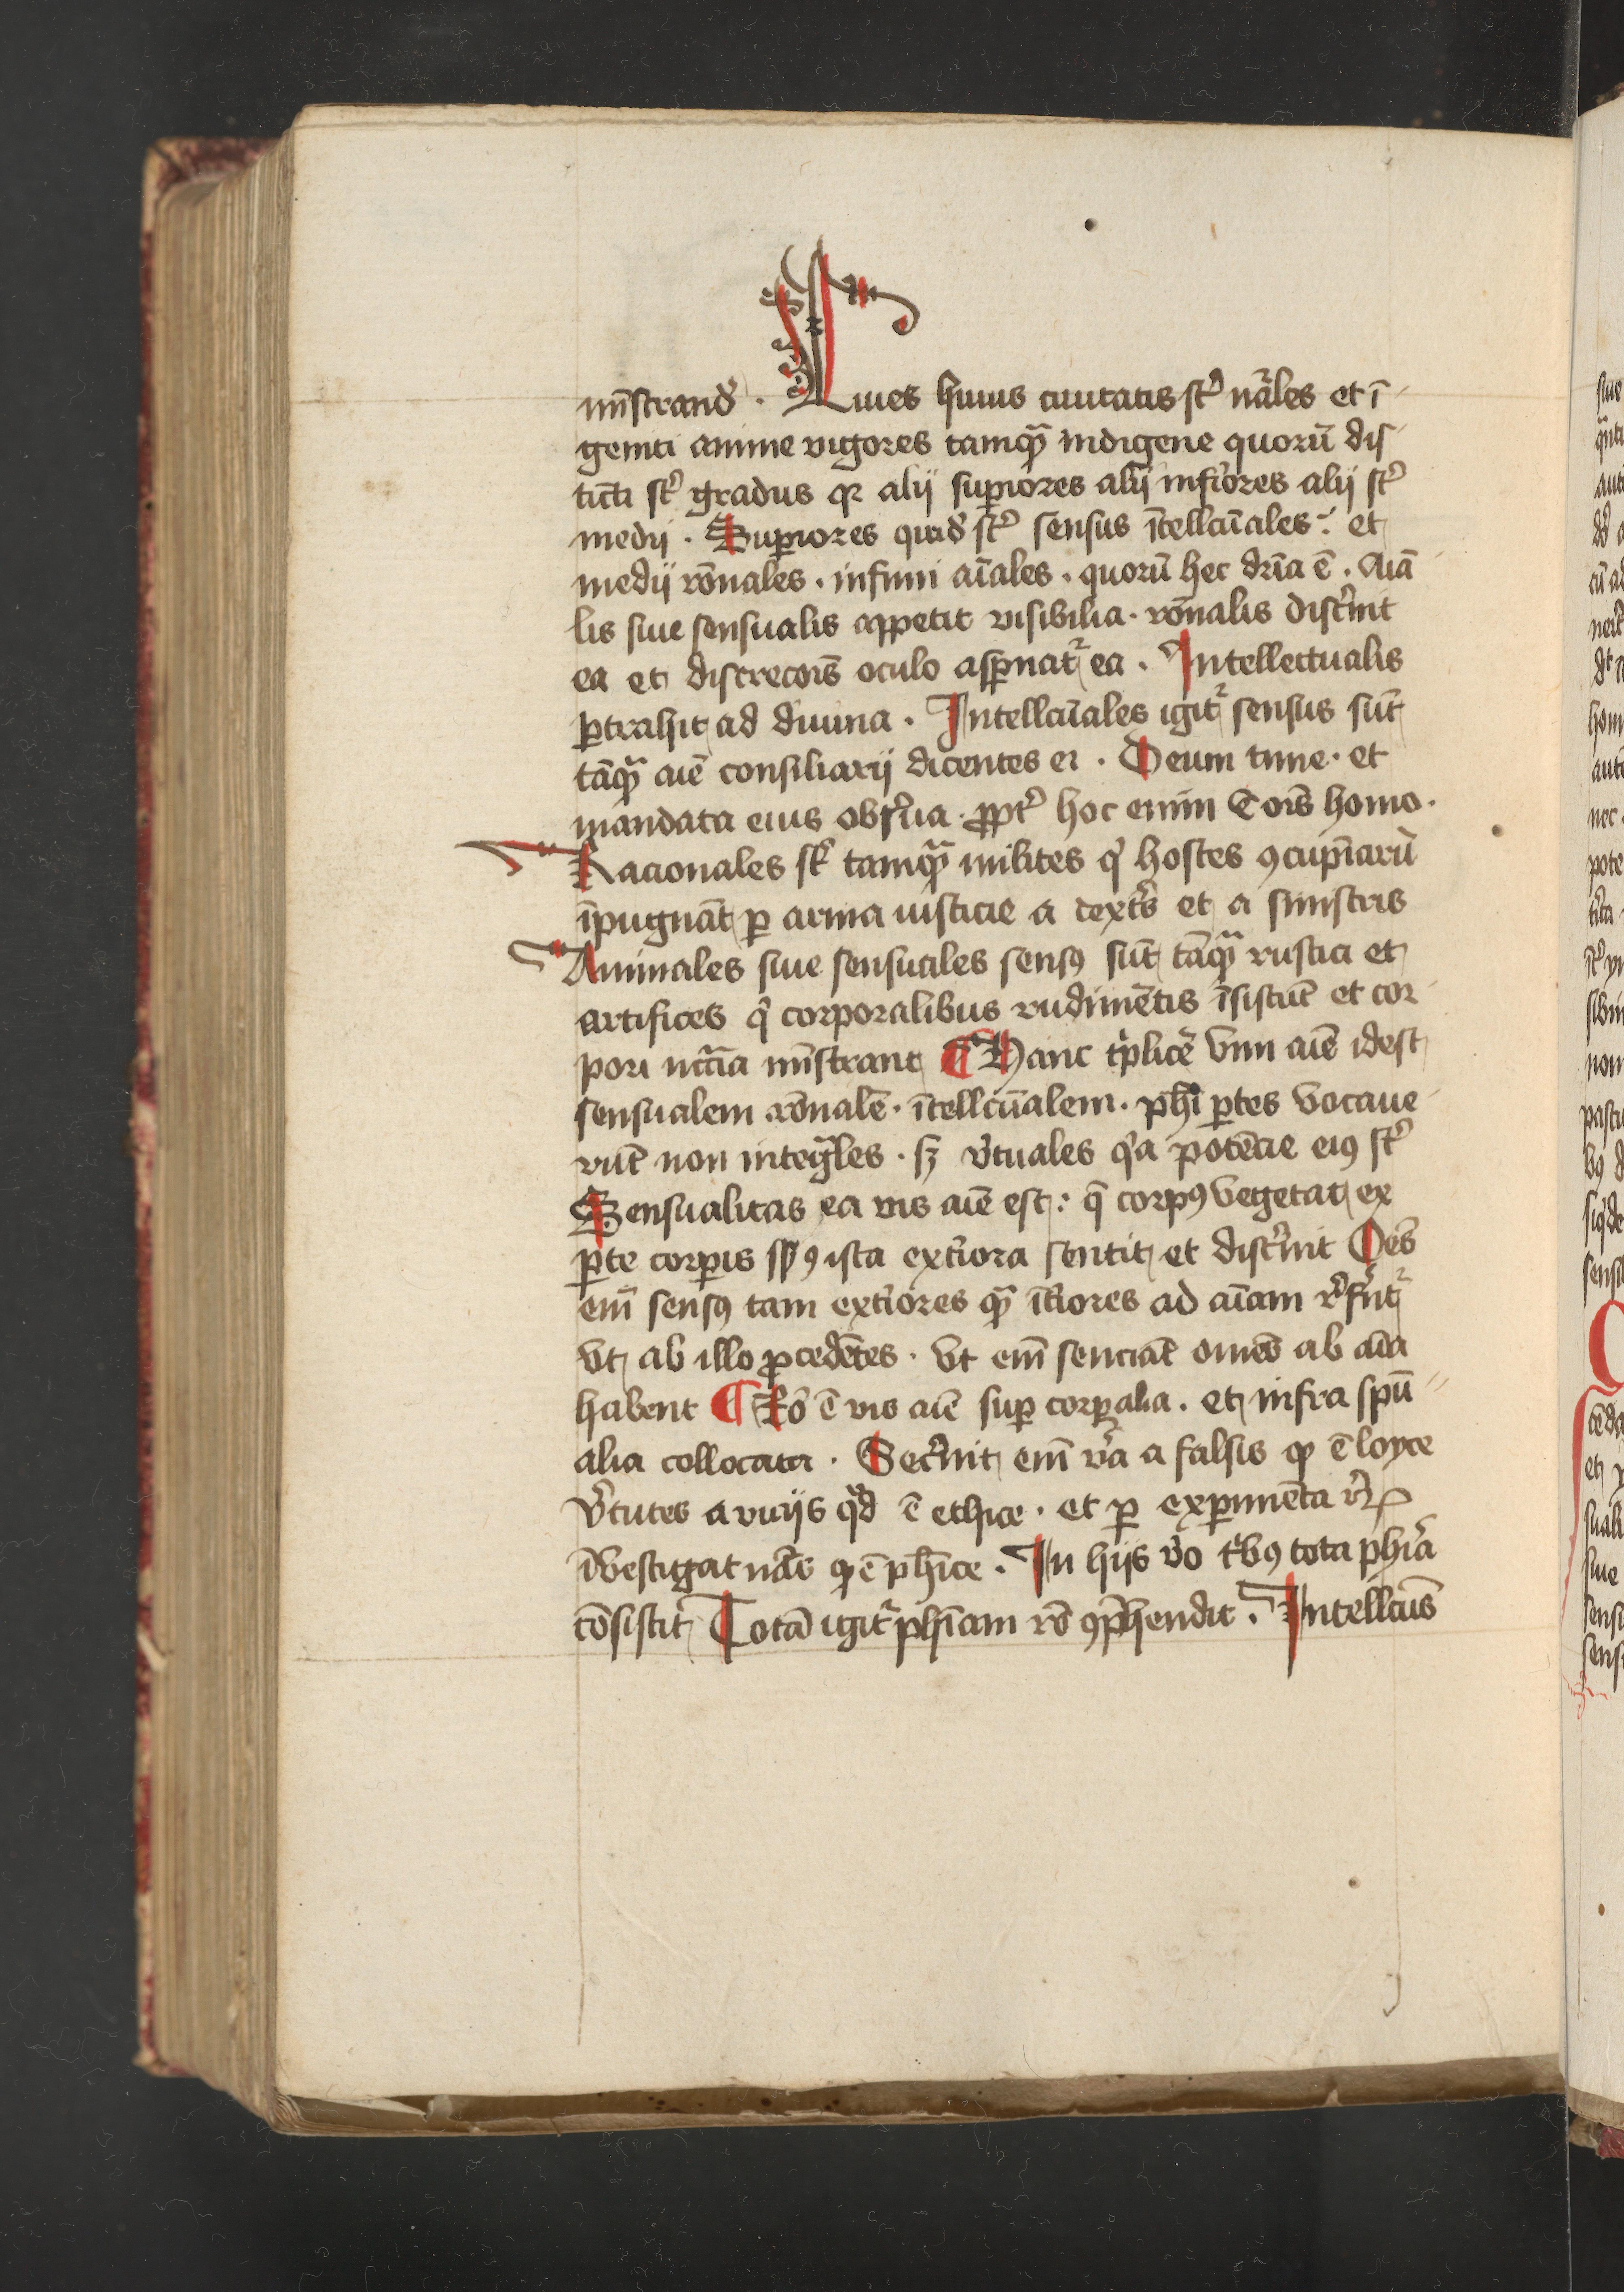 mīstrand᷒. Ciues huius ciuitatis st᷒ nāles et ī
geniti anime vigores tamqᷓ indigene quorū dis
tincti st᷒ gradus qꝛ alij supiores alij inf᷒iores alij st᷒
medij. Supiores quid᷒ st᷒ sensus ītellcūales: et
medij rōnales. infimi aīales. quorū hec drīa ē. Aiā
lis siue sensualis appetit visibilia. rōnalis disc᷒nit
ea et discrecōis oculo aspnatᷣ ea. Intellectualis
ꝑtrahit ad diuina. Intellcūales igitᷣ sensus sūt
tāqᷓ aīe consiliarij dicentes ei. Deum time. et
mandata eius obs᷒ua. ꝓpt᷒ hoc enim ē oīs homo.
Racionales sꝫ tamqᷓ milites qͥ hostes ꝯcupīarū
īpugnāt ꝑ arma iusticie a dext᷒s et a sinistris
Animales siue sensuales sensꝰ sūt tāqᷓ rustici et
artifices qͥ corporalibus rudimētis īsistūt et cor
pori nc̄cīa mīstrant ¶ Hanc tͥplicē vim aīe idest
sensualem rōnalē. ītellcūalem. phī ꝑtes vocaue
rūt non integᷓles. sꝫ v᷒tuales qͥa potēcie eiꝰ st᷒
Sensualitas ea vis aīe est: q̄ corpꝰ vegetat ex
ꝑte corꝑis spꝰ ista ext᷒iora sentit et disc᷒nit Oēs
enī sensꝰ tam ext᷒iores qᷓ īt᷒iores ad aīam r᷒f᷒ūtᷣ
vt ab illo ꝓcedētes. vt enī senciāt omēs ab aīa
habent ¶ Rō ē vis aīe suꝑ corꝑalia. et infra spū
alia collocata. Sec᷒nit enī v᷒a a falsis qͩ ē loyce
v᷒tutes a vicijs qͩ ē ethice. et ꝑ expimēta r᷒ꝝ
īvestigat nās qͩ ē phīce. In hijs v᷒o tͥbꝰ tota phīa
cōsistit Totā igitᷣ phīam rō ꝯp̄hendit. Intellcūs